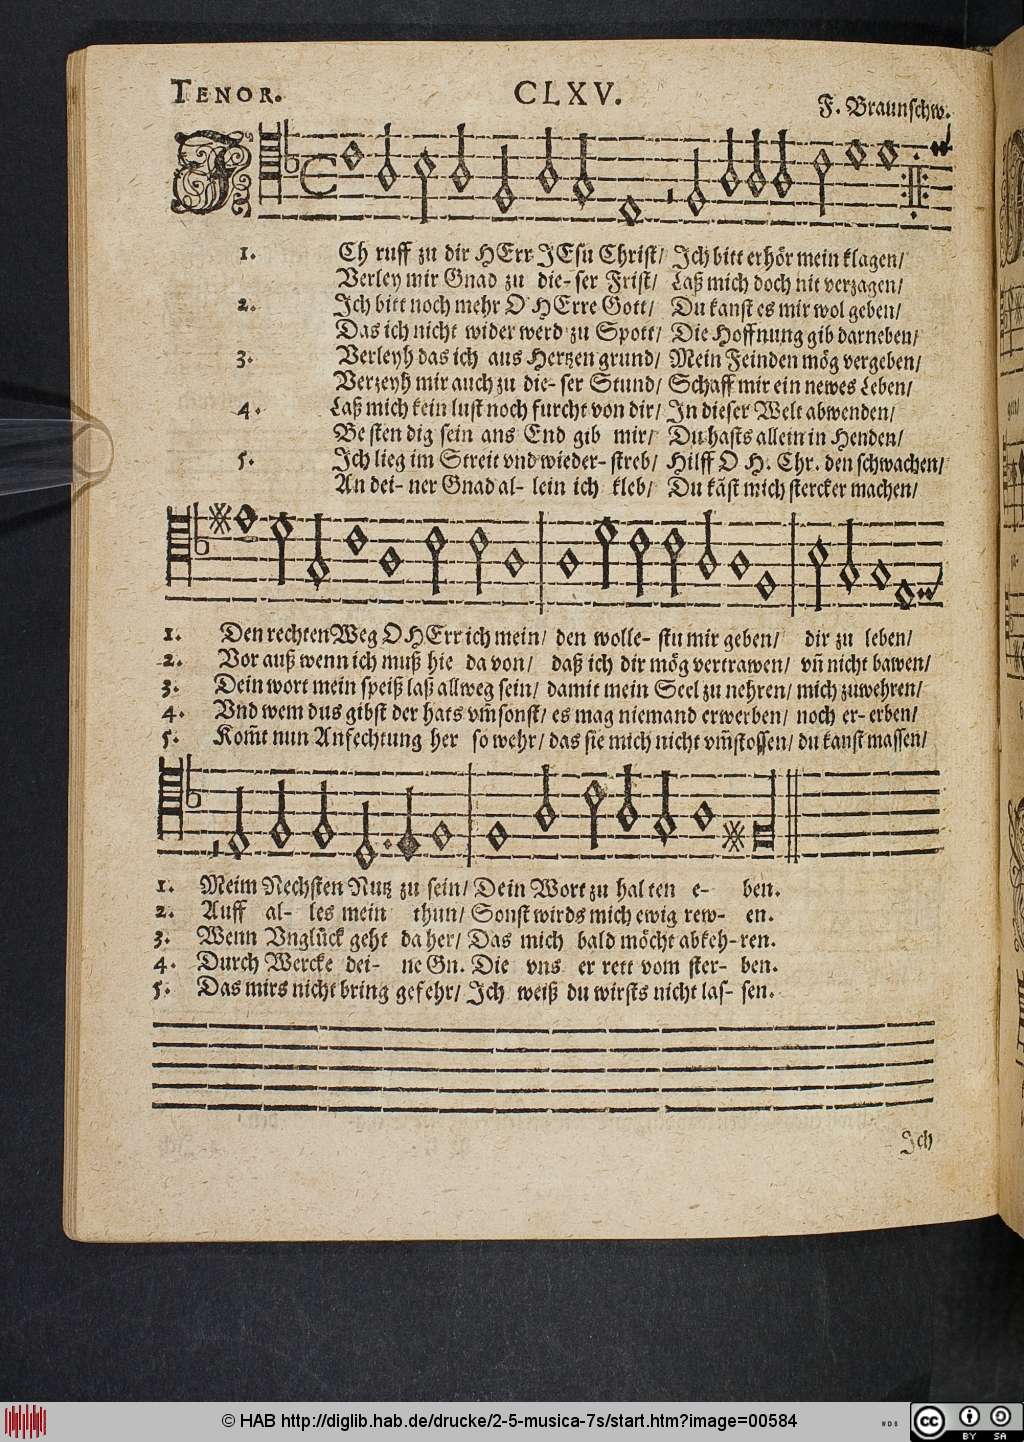 TENOR. CLXV. F. Braunschw.
1. ICh ruff zu dir HErr JEsu Christ/ Jch bitt erhör mein klagen/
Verley mir Gnad zu die- ser Frist/ Laß mich doch nit verzagen/
2. Jch bitt noch mehr O HErre Gott/ Du kanst es mir wol geben/
Das ich nicht wider werd zu Spott/ Die Hoffnung gib darneben/
3. Verleyh das ich aus Hertzen grund/ Mein Feinden mög vergeben/
Verzeyh mir auch zu die- ser Stund/ Schaff mir ein newes Leben/
4. Laß mich kein lust noch furcht von dir/ Jn dieser Welt abwenden/
Be sten dig sein ans End gib mir/ Du hasts allein in Henden/
5. Jch lieg im Streit vnd wieder- streb/ Hilff O H. Chr. den schwachen/
An dei- ner Gnad al- lein ich kleb/ Du kãst mich stercker machen/
1. Den rechten Weg O HErr ich mein/ den wolle- stu mir geben/ dir zu leben/
2. Vor auß wenn ich muß hie da von/ daß ich dir mög vertrawen/ vñ nicht bawen/
3. Dein wort mein speiß laß allweg sein/ damit mein Seel zu nehren/ mich zuwehren/
4. Vnd wem dus gibst der hats vm̃sonst/ es mag niemand erwerben/ noch er- erben/
5. Kom̃t nun Anfechtung her so wehr/ das sie mich nicht vm̃stossen/ du kanst massen/
1. Meim Nechsten Nutz zu sein/ Dein Wort zu hal ten e- ben.
2. Auff al- les mein thun/ Sonst wirds mich ewig rew- en.
3. Wenn Vnglück geht da her/ Das mich bald möcht abkeh- ren.
4. Durch Wercke dei- ne Gn. Die vns er rett vom ster- ben.
5. Das mirs nicht bring gefehr/ Jch weiß du wirsts nicht las- sen.
Jch
© HAB http://diglib.hab.de/drucke/2-5-musica-7s/start.htm?image=00584
cc BY SA